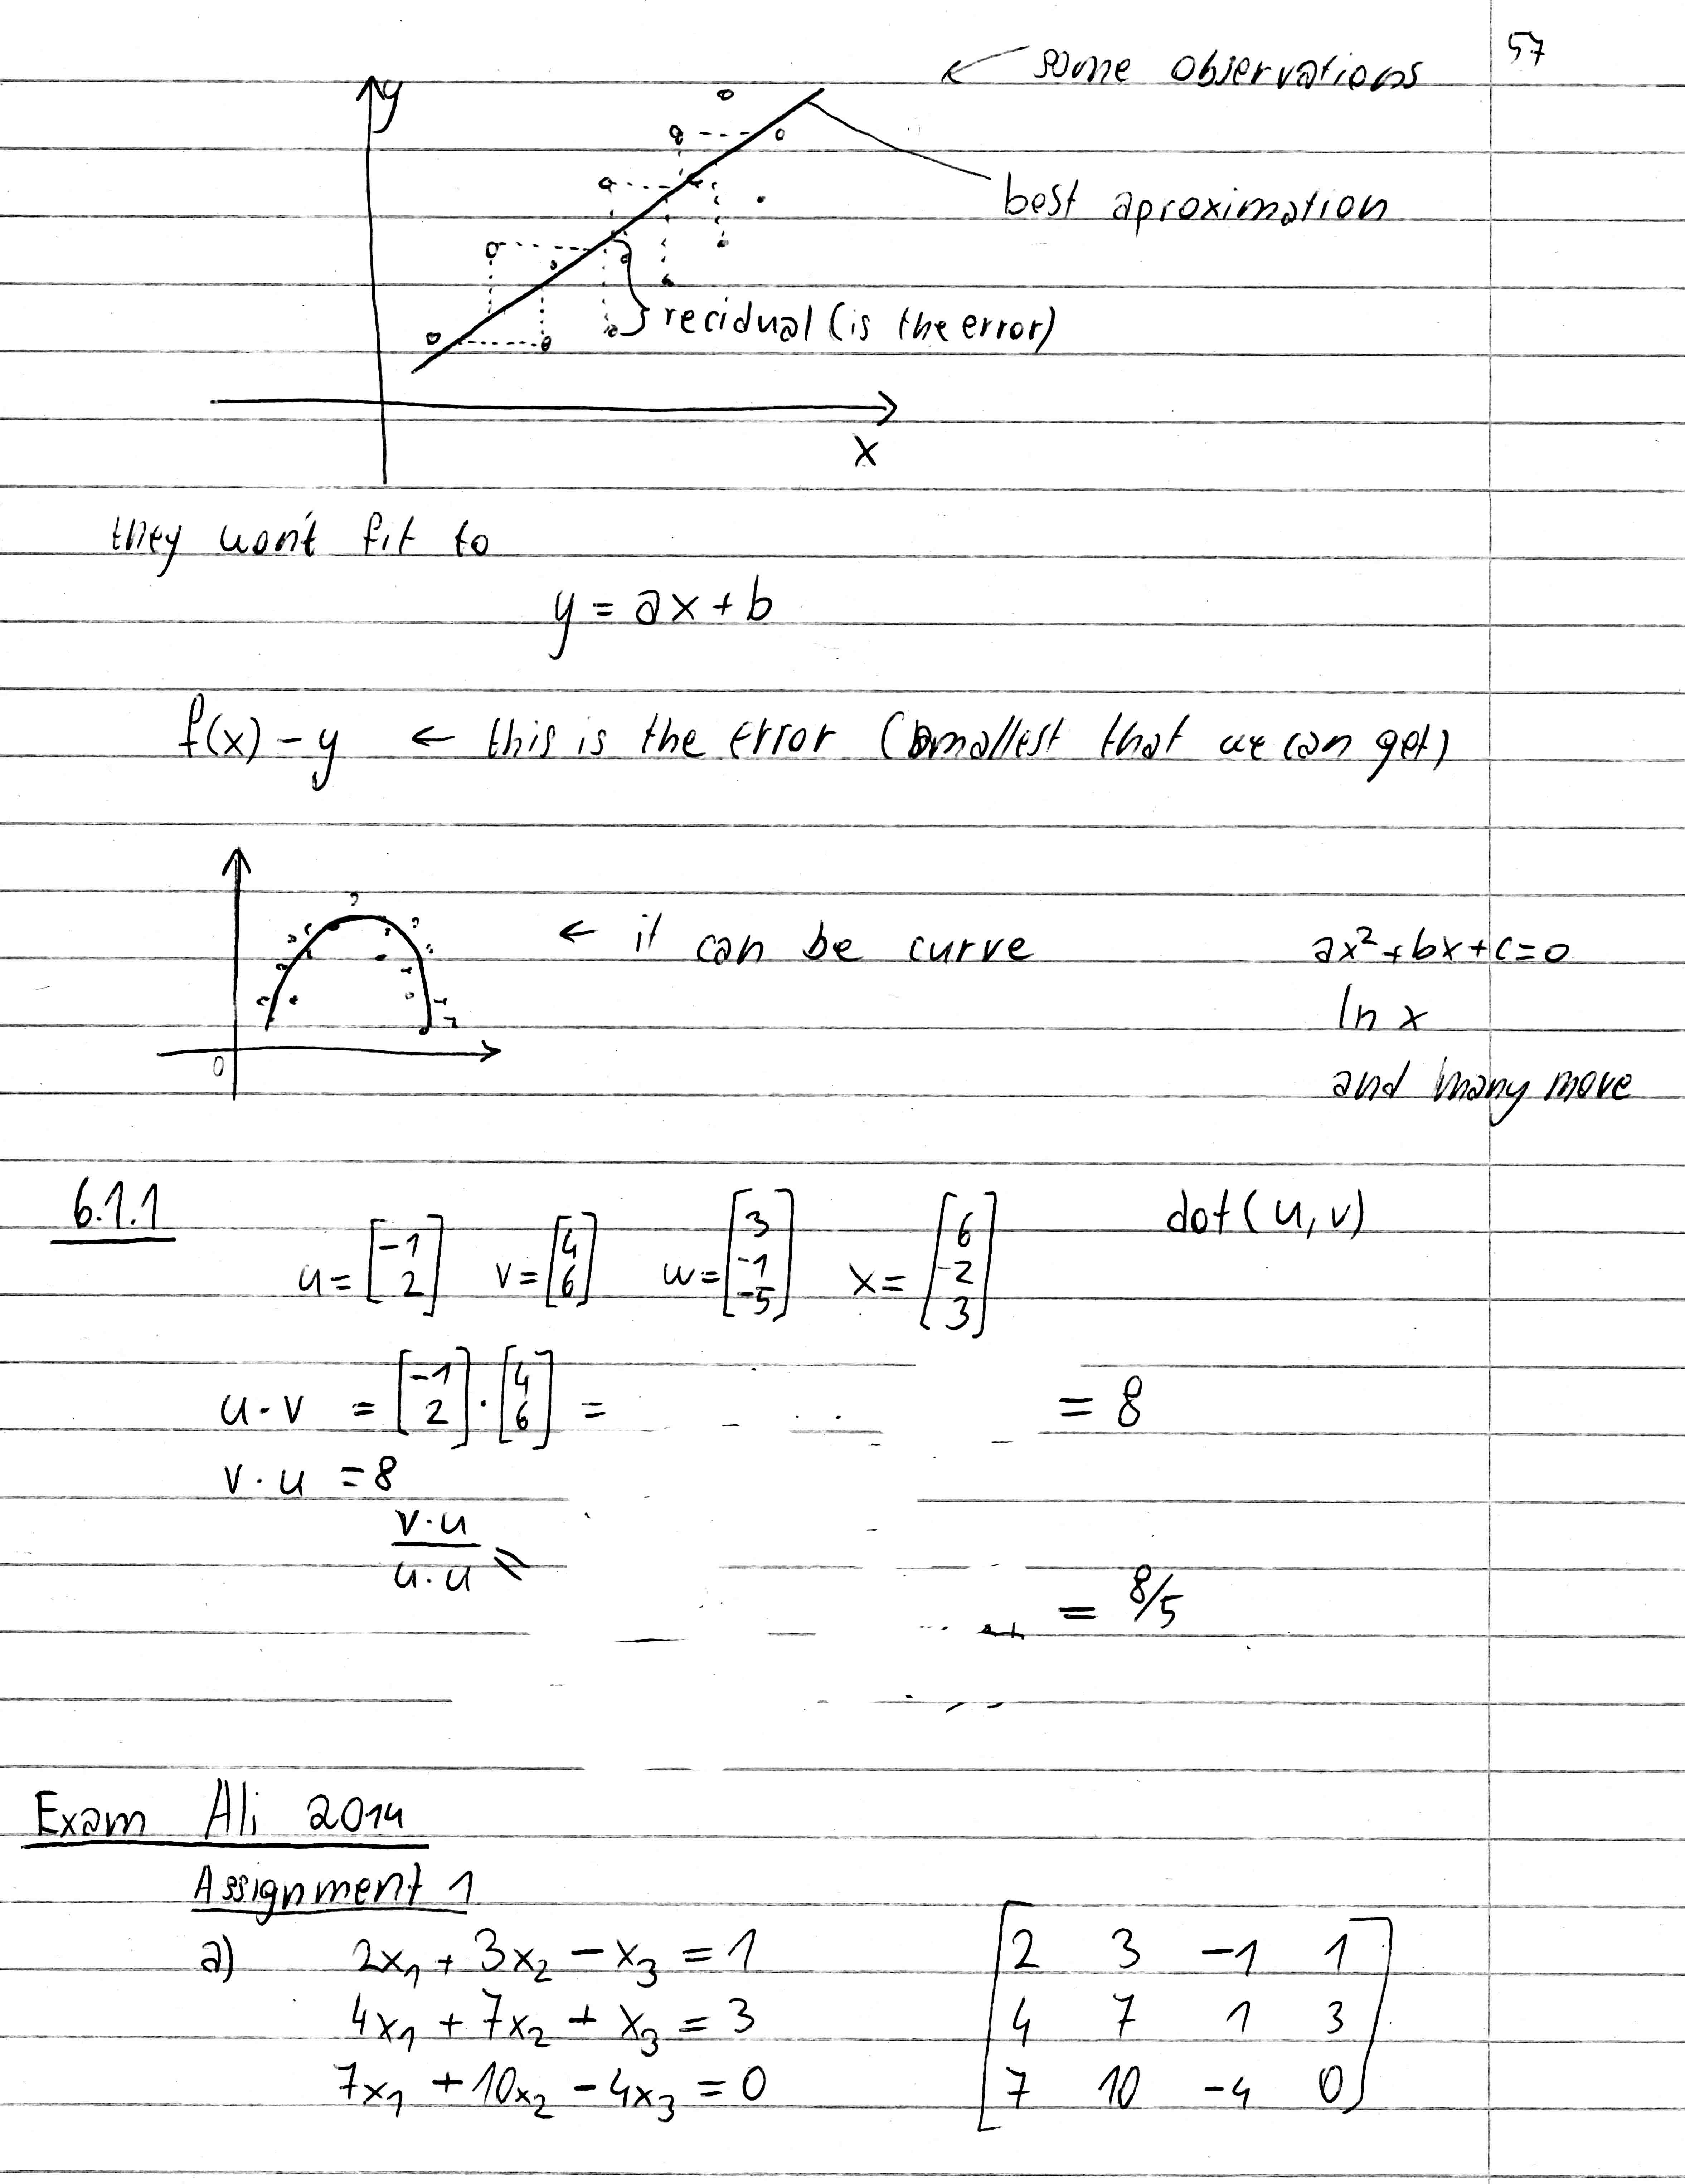 57
← some observations
y
best aproximation
recidual (is the error)
x
they won't fit to
y = ax + b
f(x) - y ← this is the error (smallest that we can get)
← it can be curve ax² + bx + c = 0
ln x
0
and many more
6.1.1 dot(u,v)
u = [-1 2] v = [4 6] w = [3 -1 -5] x = [6 -2 3]
u · v = [-1 2] · [4 6] = = 8
v · u = 8
v·u / u·u = = 8/5
Exam Ali 2014
Assignment 1
a) 2x₁ + 3x₂ - x₃ = 1 [2 3 -1 1
4x₁ + 7x₂ + x₃ = 3 4 7 1 3
7x₁ + 10x₂ - 4x₃ = 0 7 10 -4 0]